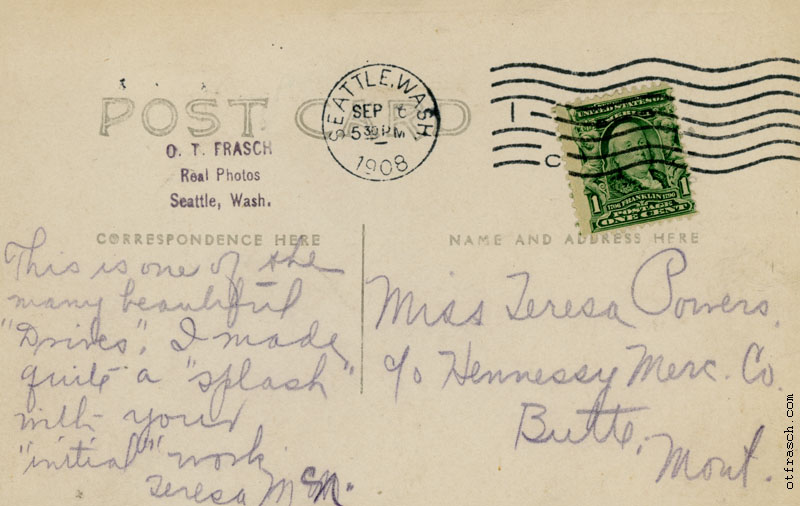 POST CARD
SEATTLE, WASH.
SEP 6
5 30 PM
1908
I
C
UNITED STATES OF
AMERICA
1706 FRANKLIN 1790
1 POSTAGE 1
ONE CENT
O. T. FRASCH
Real Photos
Seattle, Wash.
CORRESPONDENCE HERE
NAME AND ADDRESS HERE
This is one of the
many beautiful
"Drives". I made
quite a "splash"
with your
"initial" work
Teresa
Miss Teresa Powers,
c/o Hennessy Merc. Co.
Butte,
Mont.
otfrasch.com